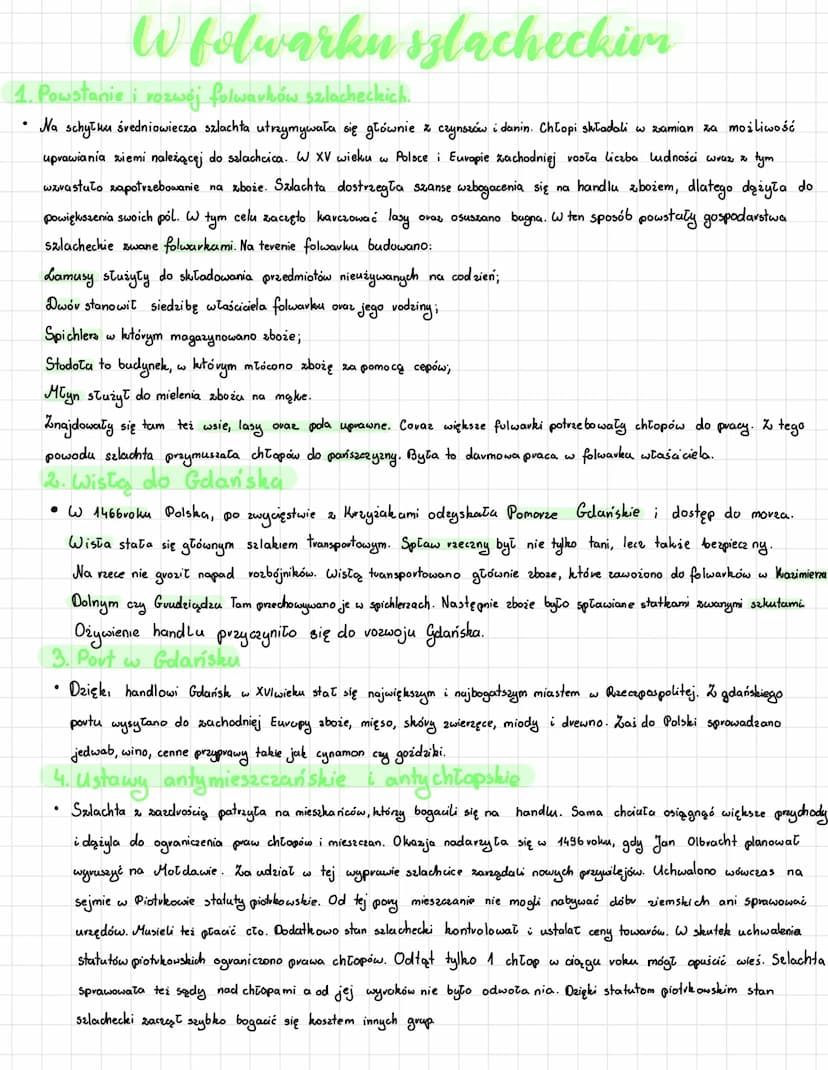 W folwarku szlacheckim
1. Powstanie i rozwój folwarków szlacheckich.
• Na schyłku średniowiecza szlachta utrzymywała się głównie z czynszów i danin. Chłopi składali w zamian za możliwość
uprawiania ziemi należącej do szlachcica. W XV wieku w Polsce i Europie zachodniej rosła liczba ludności wraz z tym
wzrastało zapotrzebowanie na zboże. Szlachta dostrzegła szanse wzbogacenia się na handlu zbożem, dlatego dążyła do
powiększenia swoich pól. W tym celu zaczęto karczować lasy oraz osuszano bagna. W ten sposób powstały gospodarstwa
szlacheckie zwane folwarkami. Na terenie folwarku budowano:
Lamusy służyły do składowania przedmiotów nieużywanych na codzień;
Dwór stanowił siedzibę właściciela folwarku oraz jego rodziny;
Spichlerz w którym magazynowano zboże;
Stodoła to budynek, w którym młócono zboże za pomocą cepów;
Młyn służył do mielenia zboża na mąke.
Znajdowały się tam też wsie, lasy oraz pola uprawne. Coraz większe folwarki potrzebowały chłopów do pracy. Z tego
powodu szlachta przymuszała chłopów do pańszczyzny. Była to darmowa praca w folwarku właściciela.
2. Wisłą do Gdańska
• W 1466 roku Polska, po zwycięstwie z Krzyżakami odzyskała Pomorze Gdańskie i dostęp do morza.
Wisła stała się głównym szlakiem transportowym. Spław rzeczny był nie tylko tani, lecz także bezpieczny.
Na rzece nie groził napad rozbójników. Wisłą transportowano głównie zboże, które zawożono do folwarków w Kazimierzu
Dolnym czy Grudziądzu Tam przechowywano je w spichlerzach. Następnie zboże było spławiane statkami zwanymi szkutami.
Ożywienie handlu przyczyniło się do rozwoju Gdańska.
3. Port w Gdańsku
• Dzięki handlowi Gdańsk w XVI wieku stał się największym i najbogatszym miastem w Rzeczpospolitej. Z gdańskiego
portu wysyłano do zachodniej Europy zboże, mięso, skóry zwierzęce, miody i drewno. Zaś do Polski sprowadzano
jedwab, wino, cenne przyprawy takie jak cynamon czy goździki.
4. Ustawy antymieszczańskie i antychłopskie
• Szlachta z zazdrością patrzyła na mieszkańców, którzy bogacili się na handlu. Sama chciała osiągnąć większe przychody
i dążyła do ograniczenia praw chłopów i mieszczan. Okazja nadarzyła się w 1496 roku, gdy Jan Olbracht planował
wyruszyć na Mołdawie. Za udział w tej wyprawie szlachcice zarządali nowych przywilejów. Uchwalono wówczas na
sejmie w Piotrkowie statuty piotrkowskie. Od tej pory mieszczanie nie mogli nabywać dóbr ziemskich ani sprawować
urzędów. Musieli też płacić cło. Dodatkowo stan szlachecki kontrolował i ustalał ceny towarów. W skutek uchwalenia
statutów piotrkowskich ograniczono prawa chłopów. Odtąt tylko 1 chłop w ciągu roku mógł opuścić wieś. Szlachta
sprawowała też sądy nad chłopami a od jej wyroków nie było odwołania. Dzięki statutom piotrkowskim stan
szlachecki zaczął szybko bogacić się kosztem innych grup